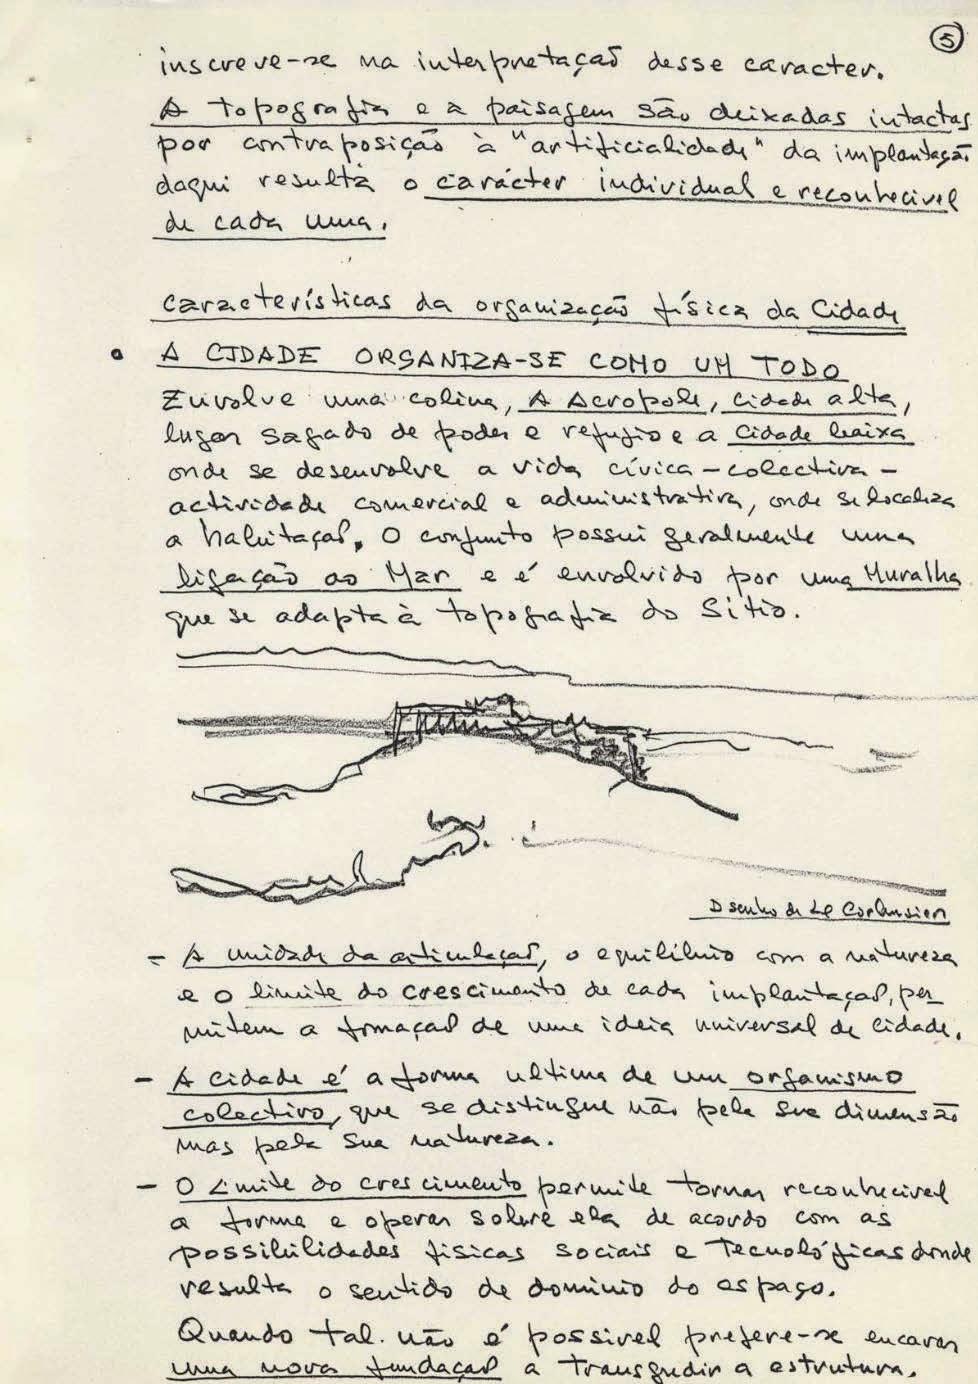 5
inscreve-se na interpretação desse caracter.
A topografia e a paisagem são deixadas intactas
por contraposição à "artificialidade" da implantação
daqui resulta o carácter individual e reconhecivel
de cada uma.
características da organização física da Cidade
• A CIDADE ORGANIZA-SE COMO UM TODO
Envolve uma colina, A Acropole, cidade alta,
lugar sagrado de poder e refugio e a cidade baixa
onde se desenvolve a vida cívica - colectiva -
actividade comercial e administrativa, onde se localiza
a habitação. O conjunto possui geralmente uma
ligação ao Mar e é envolvido por uma Muralha
que se adapta à topografia do Sítio.
Dsenho de Le Corbusier
- A unidade da articulação, o equilíbrio com a natureza
e o limite do crescimento de cada implantação, per
mitem a formação de uma ideia universal de cidade.
- A cidade é a forma ultima de um organismo
colectivo, que se distingue não pela sua dimensão
mas pela sua natureza.
- O Limite do crescimento permite tornar reconhecivel
a forma e operar sobre ela de acordo com as
possibilidades fisicas sociais e tecnológicas donde
resulta o sentido de dominio do espaço.
Quando tal não é possivel prefere-se encarar
uma nova fundação a transgredir a estrutura.